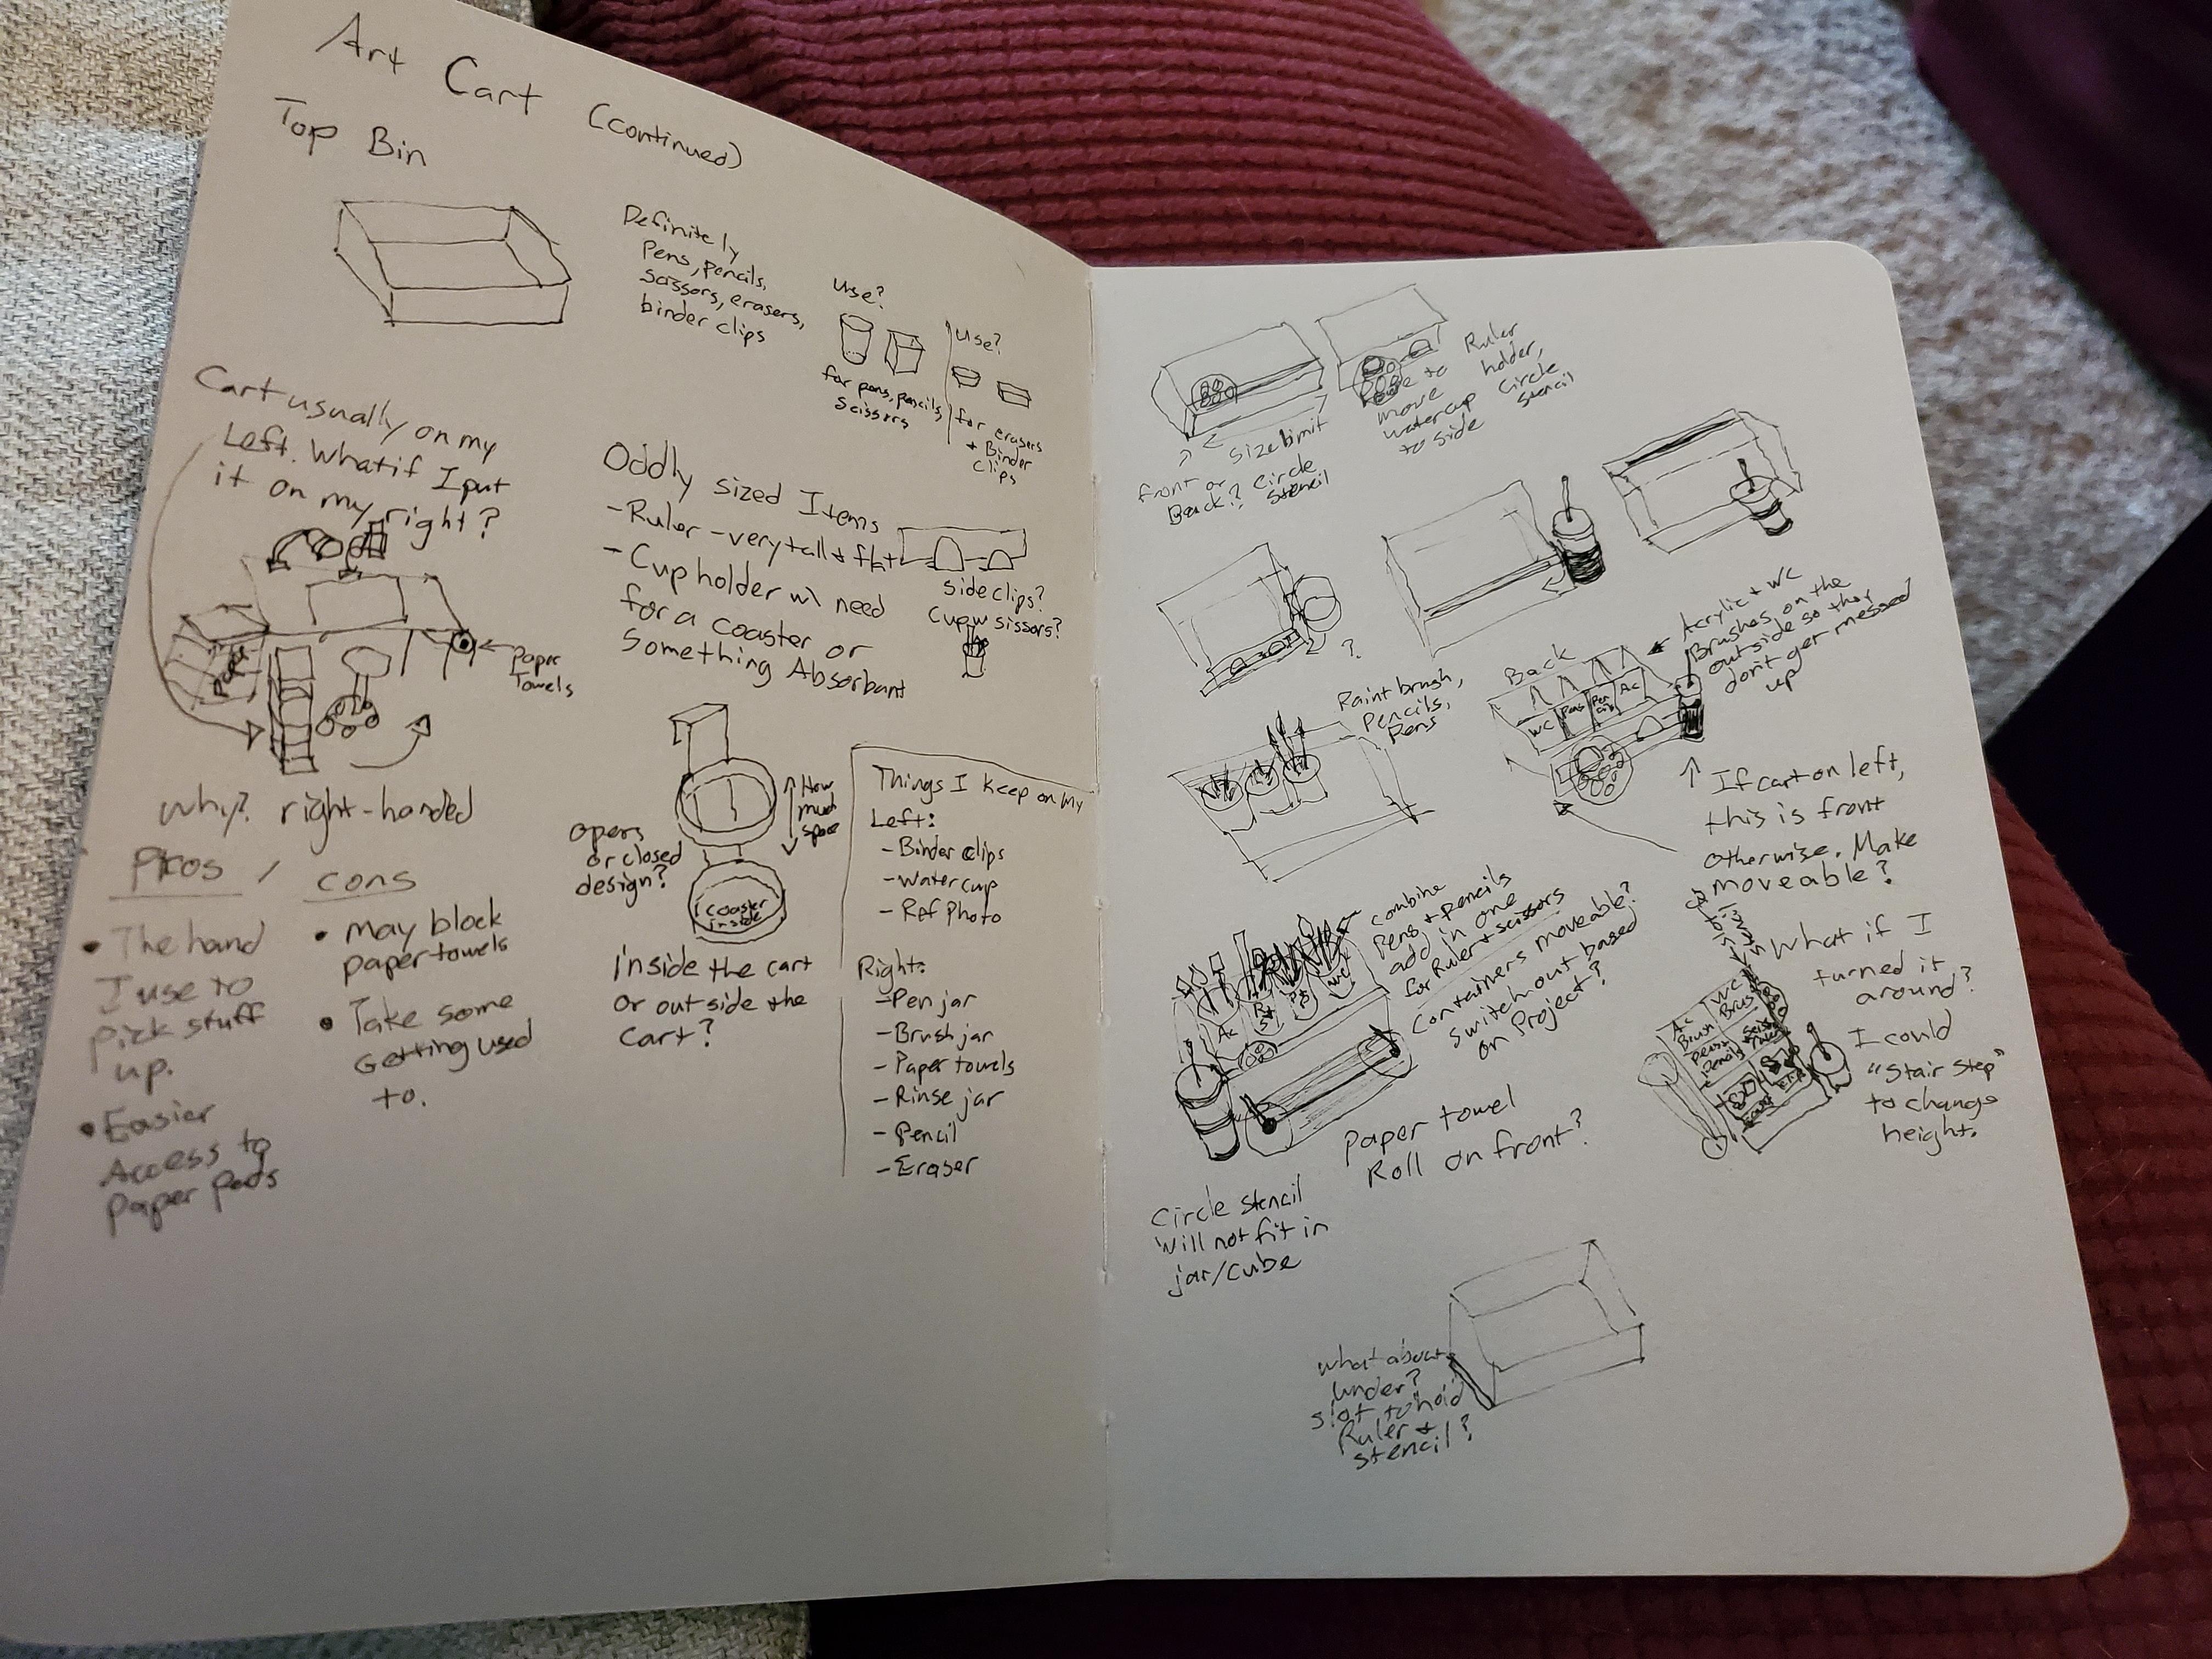 Art Cart (continued)
Top Bin
Definitely
Pens, pencils,
scissors, erasers,
binder clips
use?
for pens, pencils,
scissors
use?
for erasers
+ Binder
clips
Cart usually on my
Left. What if I put
it on my right?
Paper
Towels
why? right-handed
Pros / cons
• The hand
I use to
pick stuff
up.
• Easier
Access to
paper pads
• may block
paper towels
• Take some
Getting used
to.
Oddly sized Items
- Ruler - very tall + flat
- Cup holder w\ need
for a coaster or
something Absorbant
side clips?
cup w sissors?
open
or closed
design?
How
much
space
coaster
inside
inside the cart
or outside the
cart?
Things I keep on my
Left:
- Binder clips
- water cup
- Ref Photo
Right:
- Pen jar
- Brush jar
- Paper towels
- Rinse jar
- Pencil
- Eraser
size limit
Circle
stencil
front or
Back?
move
water cup
to side
Ruler
holder,
circle
stencil
?
Paint brush,
pencils,
Pens
Back
WC
Pens
Pen
cils
Ac
Acrylic + WC
Brushes on the
outside so they
don't get messed
up
If cart on left,
this is front
otherwise. Make
moveable?
combine
Pens + pencils
add in one
for Ruler + scissors
Containers moveable?
Switch out based
on Project?
Ac
WC
Paper towel
Roll on front?
Circle stencil
will not fit in
jar/cube
What if I
turned it
around?
I could
"stair step"
to change
height.
Ac
Brush
WC
Brush
Pens+
Pencils
what about
under?
slot to hold
Ruler +
stencil?